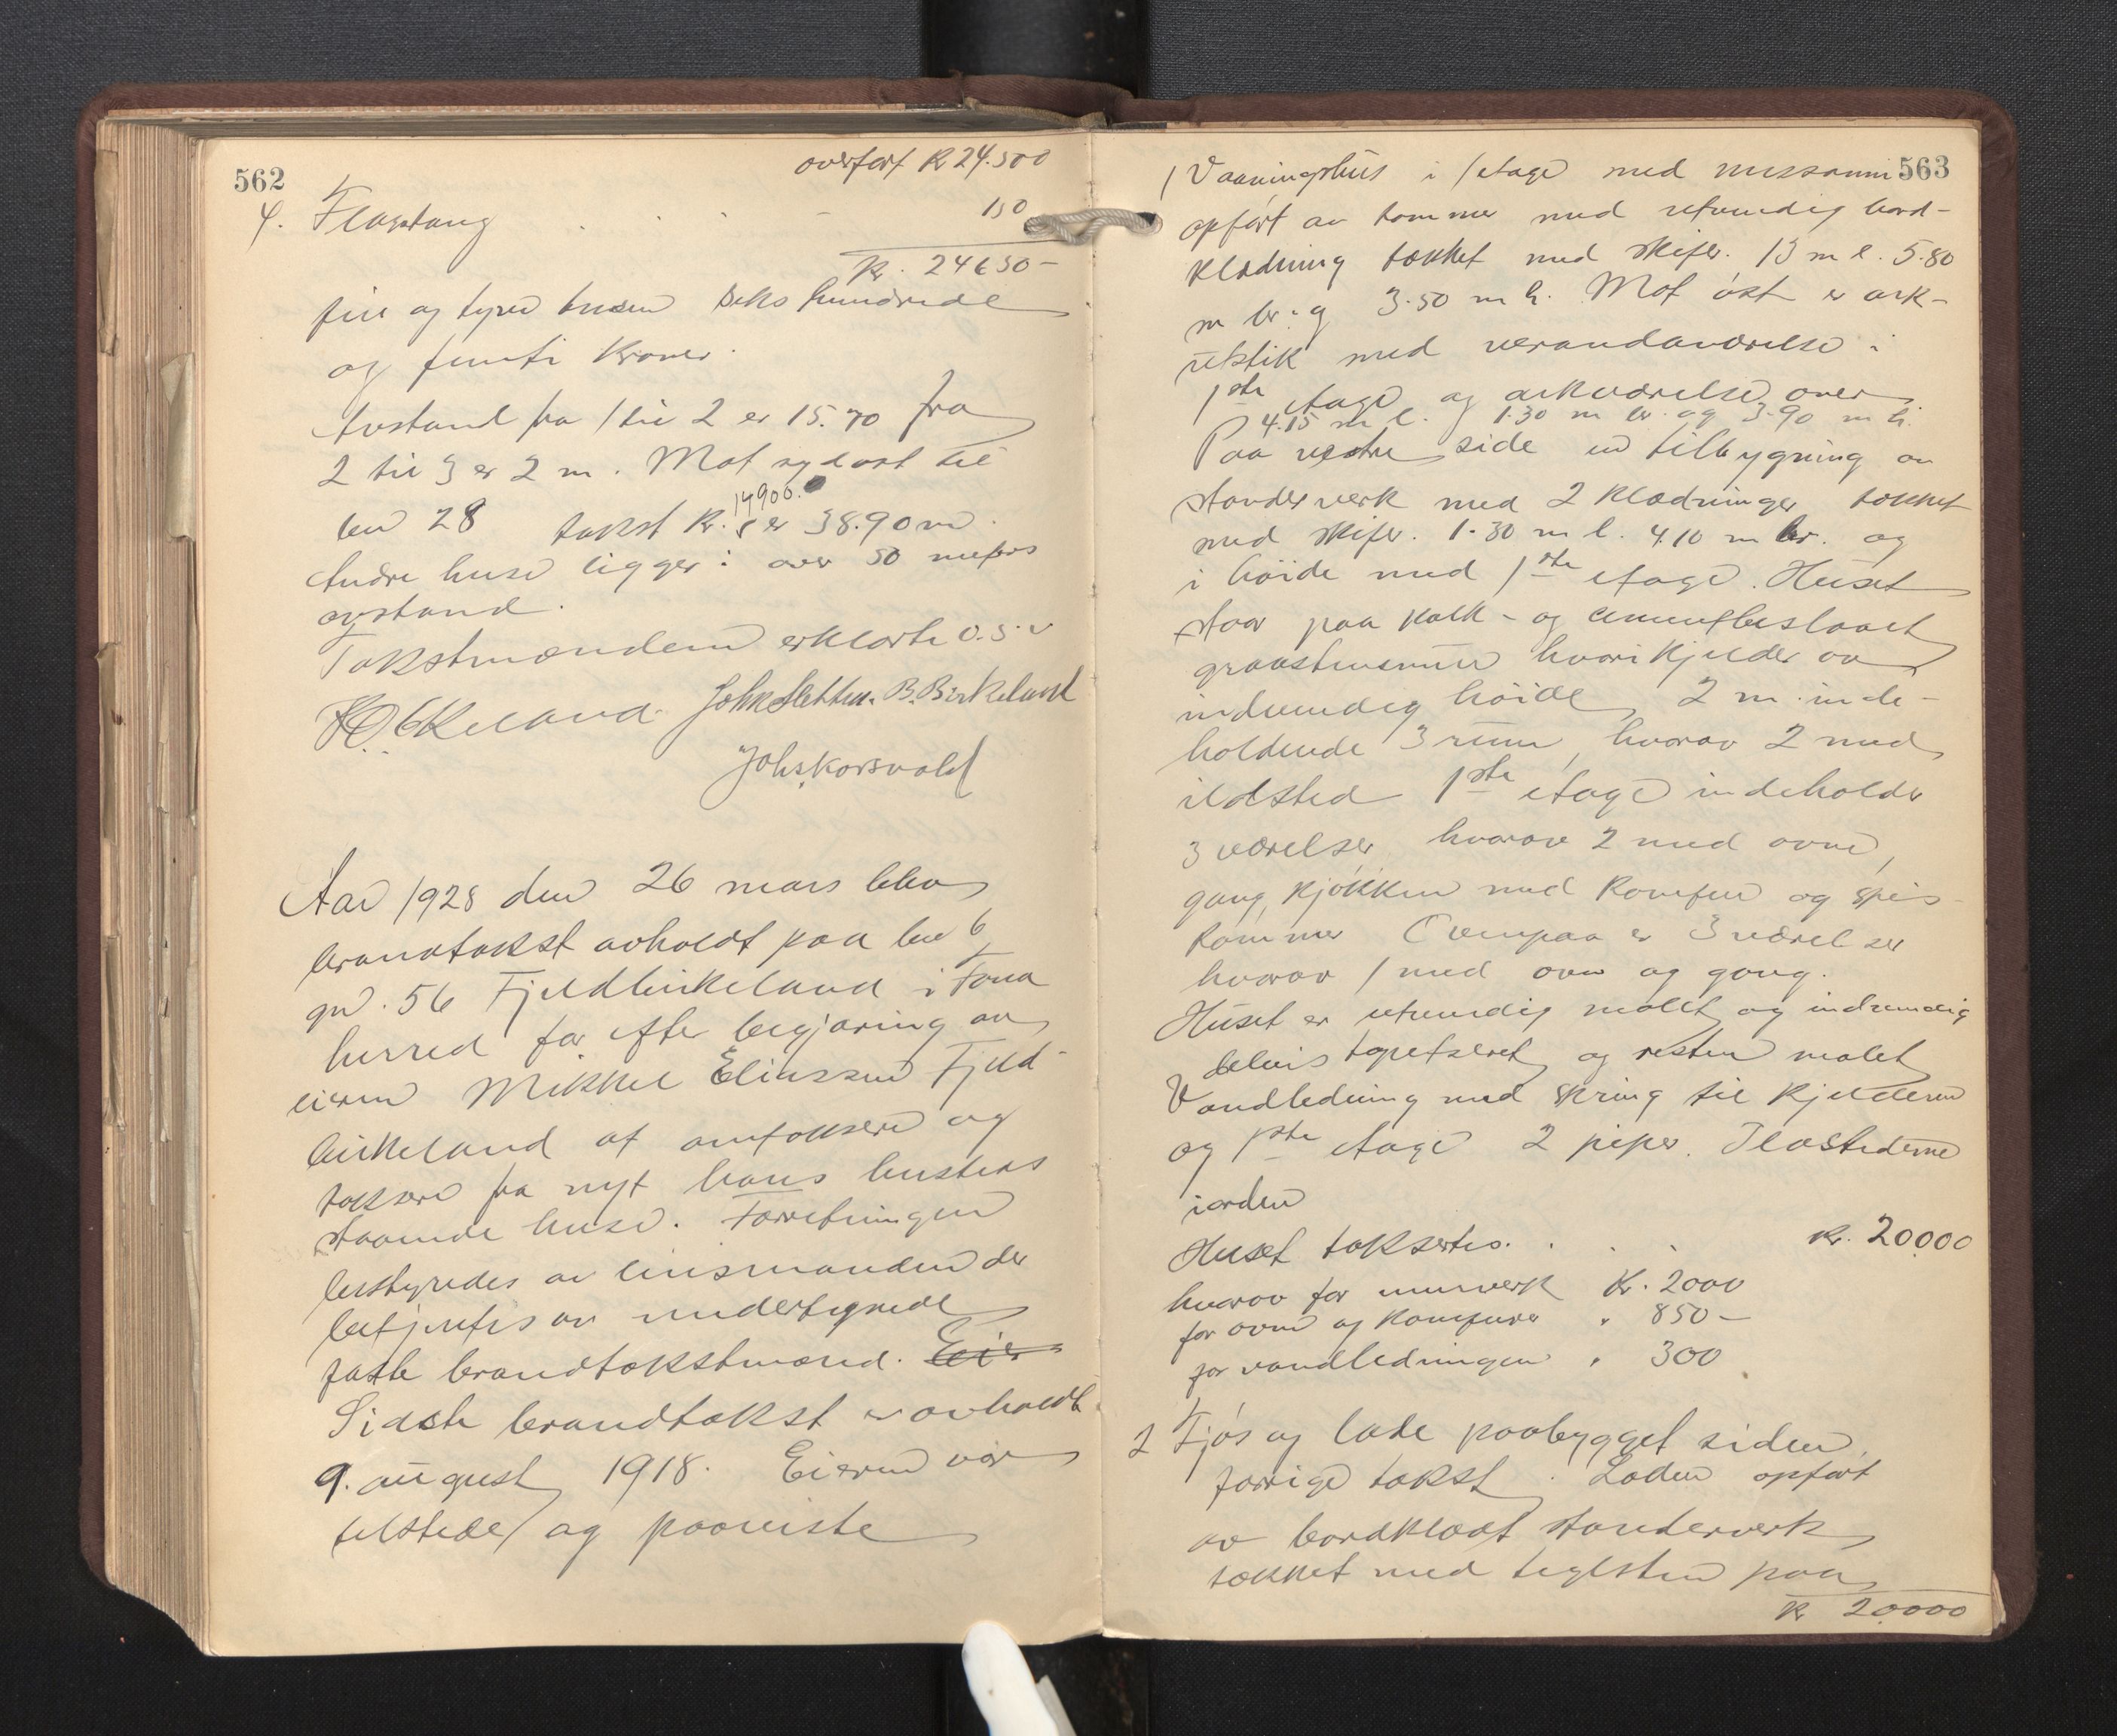 562
overført Kr 24.500
4. Flagstang . . - 150
Kr. 24650-
fire og tyve tusen seks hundrede
og femti Kroner.
Avstand fra 1 til 2 er 15.70 fra
2 til 3 er 2 m. Mot sydost til
bno 28 takst Kr. 14900. er 38.90 m.
Andre huse ligger i over 50 meters
avstand.
Takstmændene erklærte o.s.v
Birkeland
B. Birkeland
Johs Korsvold
Aar 1928 den 26 mars blev
brandtakst avholdt paa bno 6
gno. 56 Fjeldbirkeland i Fana
herred for efter begjæring av
eieren Mikkel Eliassen Fjeld-
birkeland at omtaksere og
taksere fra nyt hans husteds
staaende huse. Forretningen
bestyredes av lensmanden der
betjentes av undertegnede
faste brandtakstmænd. Eier
Sidste brandtakst er avholdt
9. august 1918. Eieren var
tilstede og paaviste
563
1 Vaaningshus i 1 etage med messanin
opført av tømmer med utvendig bord-
klædning tækket med skifer. 13 m l. 5.80
m br. og 3.50 m h. Mot øst er ark-
utstik med verandaværelse i
1ste etage og arkværelse over
4.15 m l. 1.30 m br. og 3.90 m h.
Paa vestre side en tilbygning av
standerverk med 2 klædninger tækket
med skifer. 1.30 m l. 4.10 m br. og
i høide med 1ste etage. Huset
staar paa kalk- og cementbeslaaet
graastensmur hvori kjelder av
indvendig høide 2 m. inde-
holdende 3 rum, hvorav 2 med
ildsted 1ste etage indeholder
3 værelser hvorav 2 med ovne,
gang, kjøkken med Komfur og spis-
kammer Ovenpaa er 3 værelser
hvorav 1 med ovn og gang.
Huset er utvendig malet og indvendig
delvis tapetseret og resten malet
Vandledning med skring til kjelderen
og 1ste etage 2 piper. Ildstederne
iorden
Huset taksertes. . . . Kr. 20000
hvorav for murverk Kr. 2000
for ovne og Komfurer " 850-
for vandledningen " 300
2 Fjøs og lade paabygget siden
forrige takst. Laden opført
av bordklædt standerverk
tækket med teglsten paa
Kr 20000